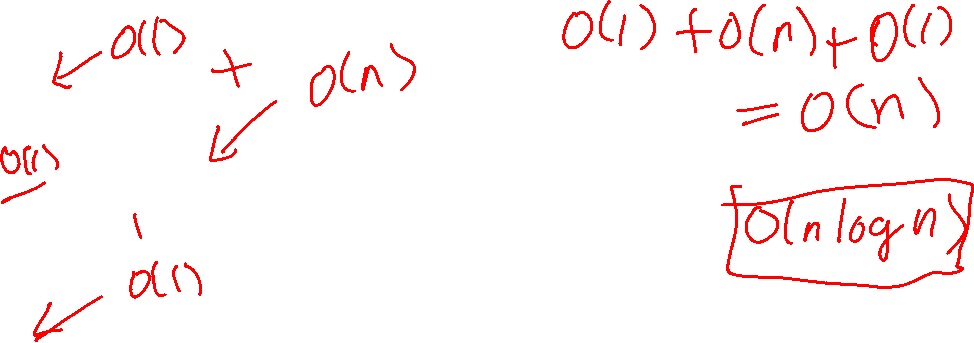 O(1)
+ O(n)
O(1)
O(1)
O(1) + O(n) + O(1)
= O(n)
O(n log n)